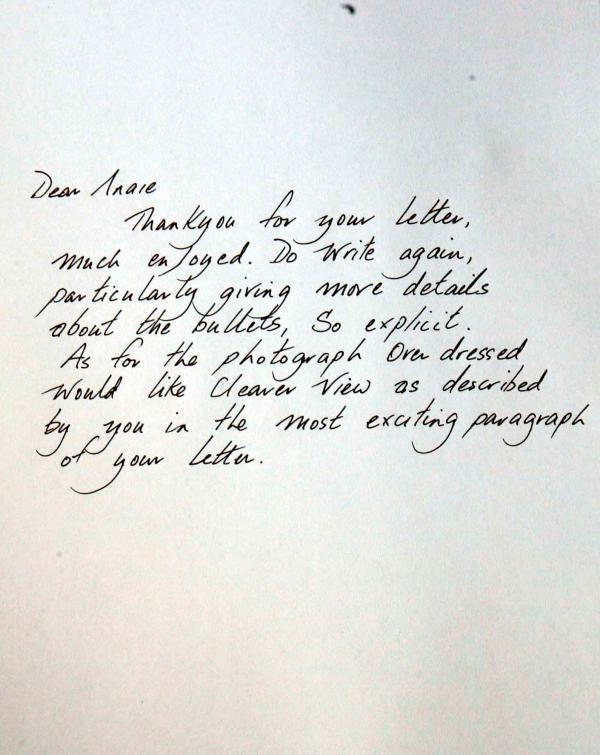 Dear Anaie
Thankyou for your letter,
much enjoyed. Do write again,
particularly giving more details
about the bullets, So explicit.
As for the photograph Over dressed
Would like Clearer View as described
by you in the most exciting paragraph
of your letter.